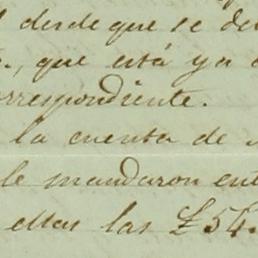 desde que se de
que está ya
rrespondiente.
la cuenta de
le mandaron ent
ellas las £54.